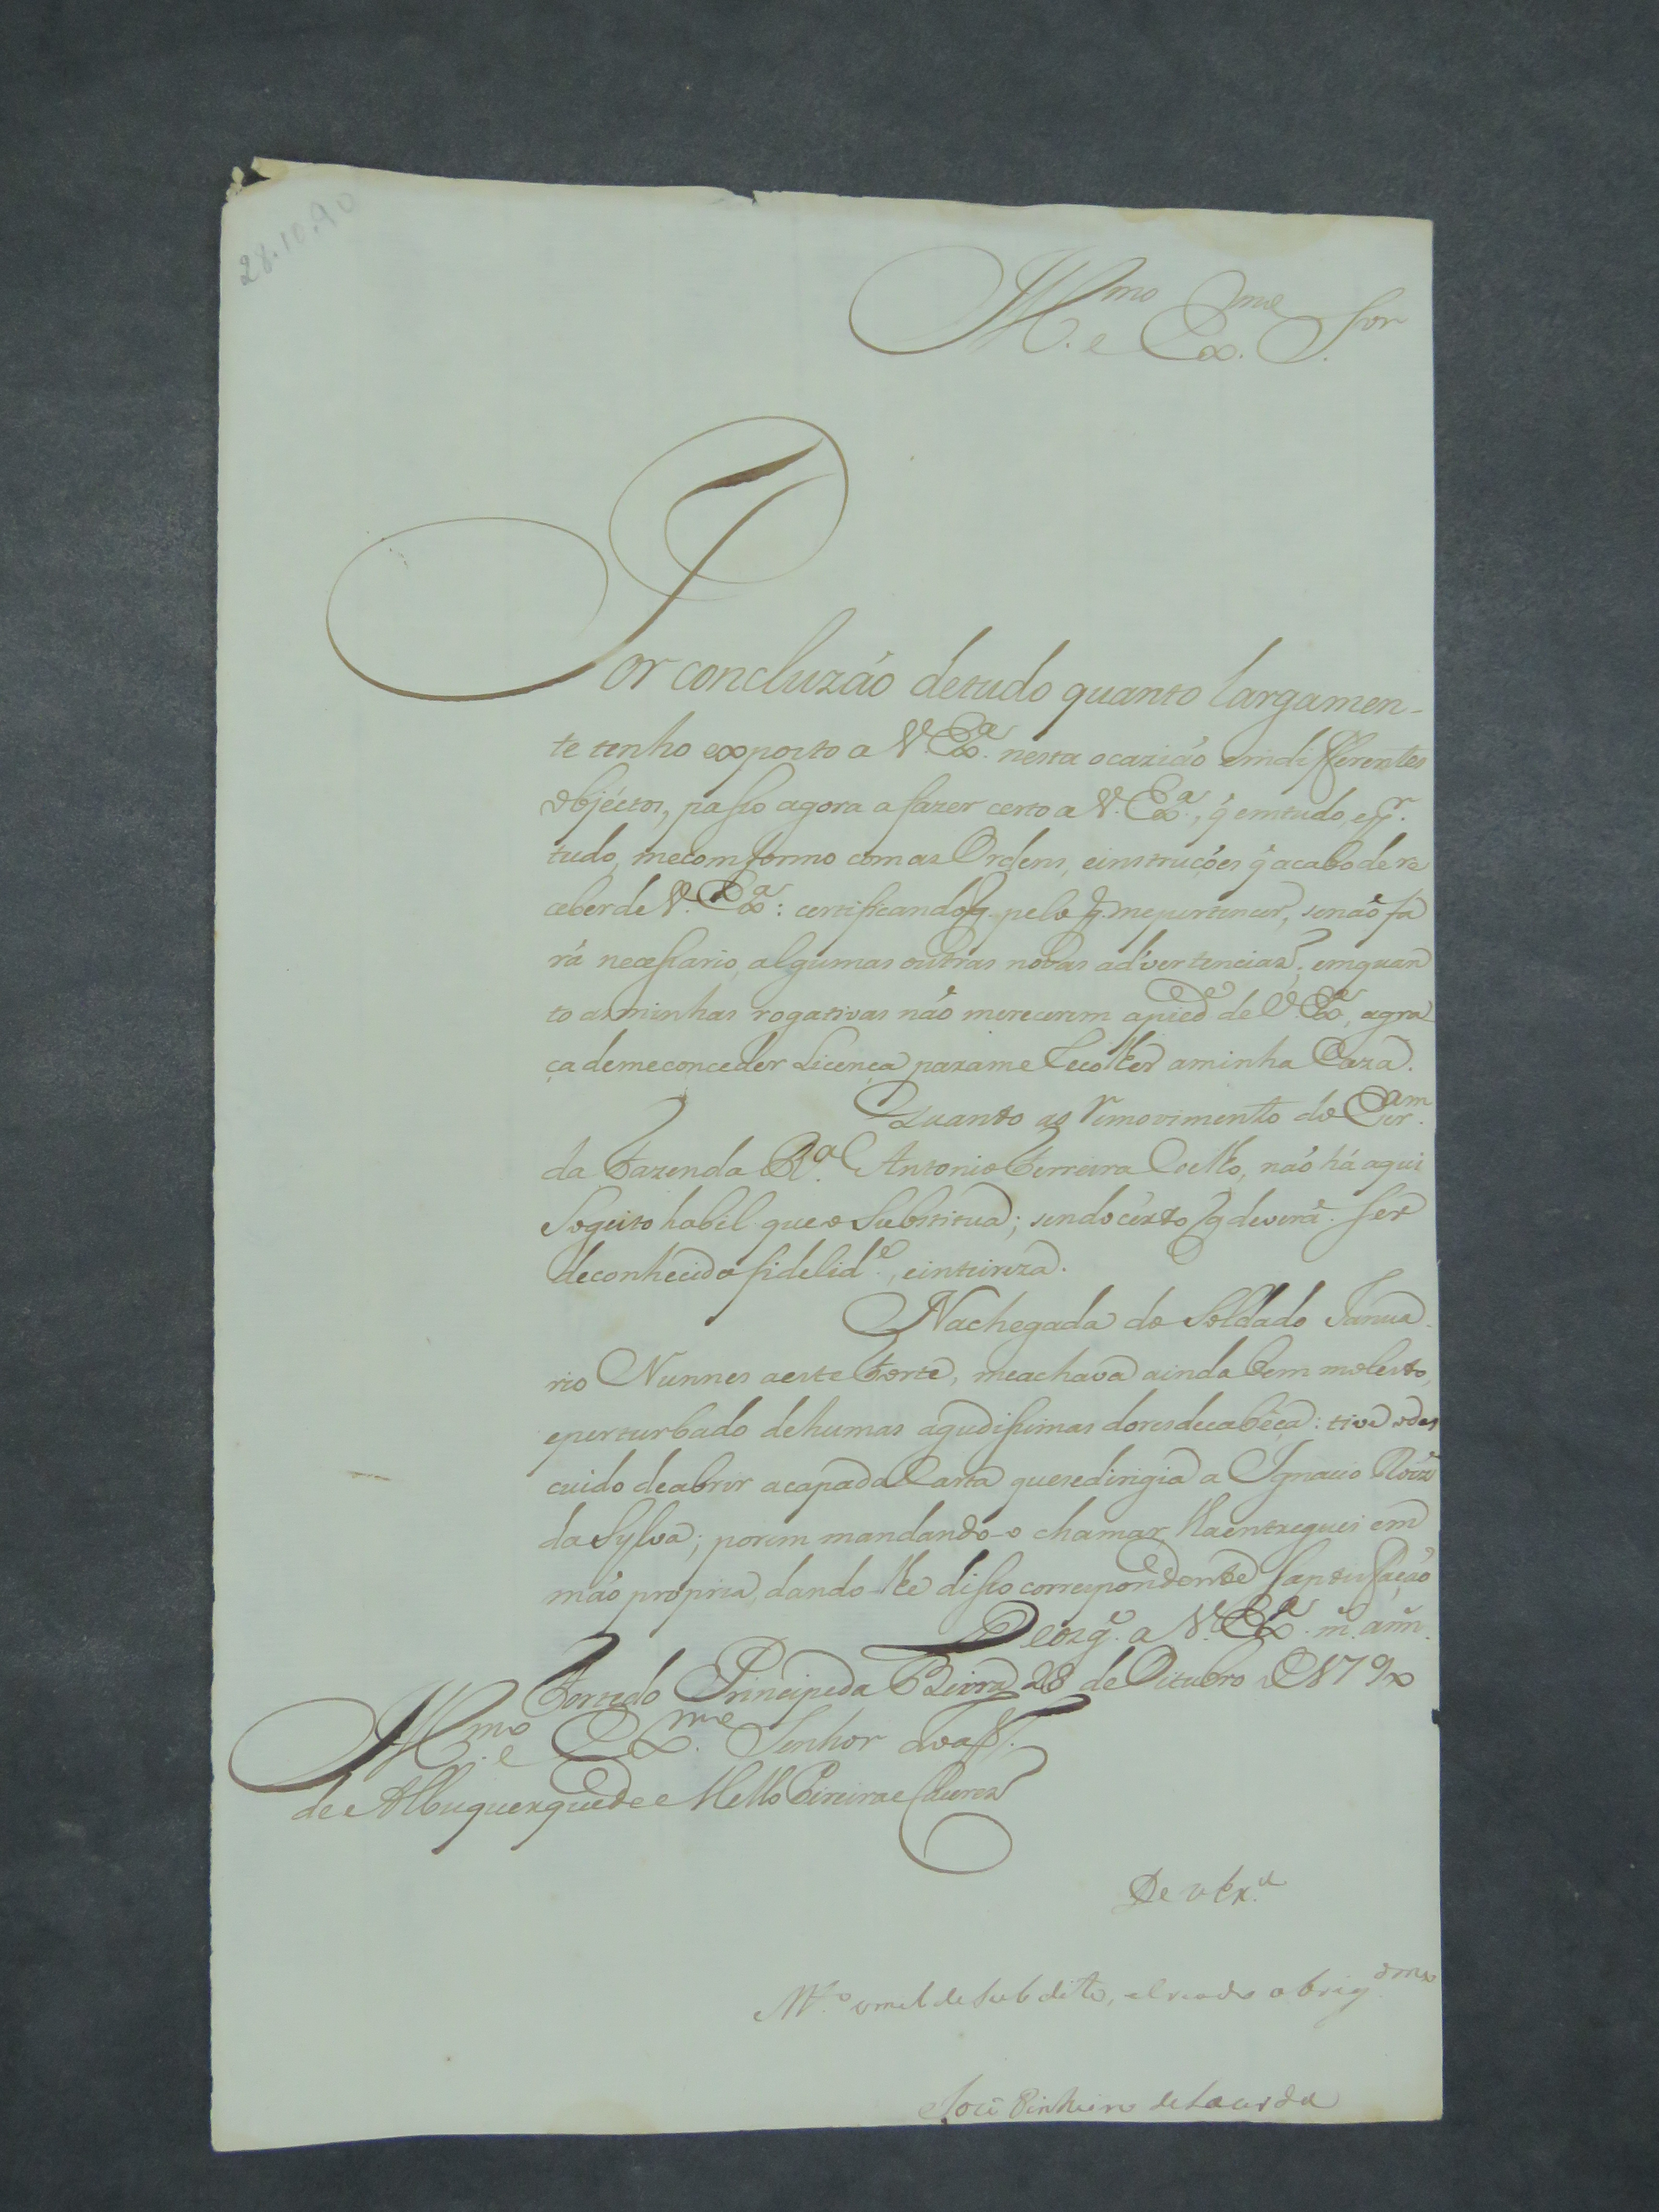 28.10.90
Ill.mo e Ex.mo S.or
Por concluzaõ detudo quanto largamen-
te tenho exposto a V. Ex.a nesta ocaziaõ emdifferentes
objéctos, passo agora a fazer certo a V. Ex.a, q̃ emtudo, ep.r
tudo, mecomformo comas Ordens, einstruções q̃ acabo de re
ceber de V. Ex.a: certificando q. pelo q. mepertencer, senaõ fa
rá necessario, algumas outras novas advertencias; emquan
to asminhas rogativas naõ merecerem apied.e de V. Ex.a, agra
ça demeconceder Licença parame recolher aminha Caza.
Quanto ao removimento do
da Fazenda R.al Antonio Ferreira Coelho, naõ há aqui
Sogeito habil que o Substitua; sendo certo q deverá ser
deconhecida fidelid.e, einteireza.
Nachegada do Soldado Janua-
rio Nunnes aeste Forte, meachava ainda bem molesto,
eperturbado dehumas agudissimas dores decabeça: tive odes
cuido deabrir acapada Carta quesedirigia a Ignacio Roiz
da Sylva; porem mandando-o chamar, lha entreguei em
maõ propria, dando-lhe disso correspondente
Deos g.e a V. Ex.a m. ann.
Forte do Principe da Beira 28 de Oitubro 1790
Ill.mo e Ex.mo Senhor
de Albuquerque de Mello Pereira e Caceres
De V Ex.a
M.to omilde Subdito, e criado obrig.dmo
José Pinheiro de Lacerda